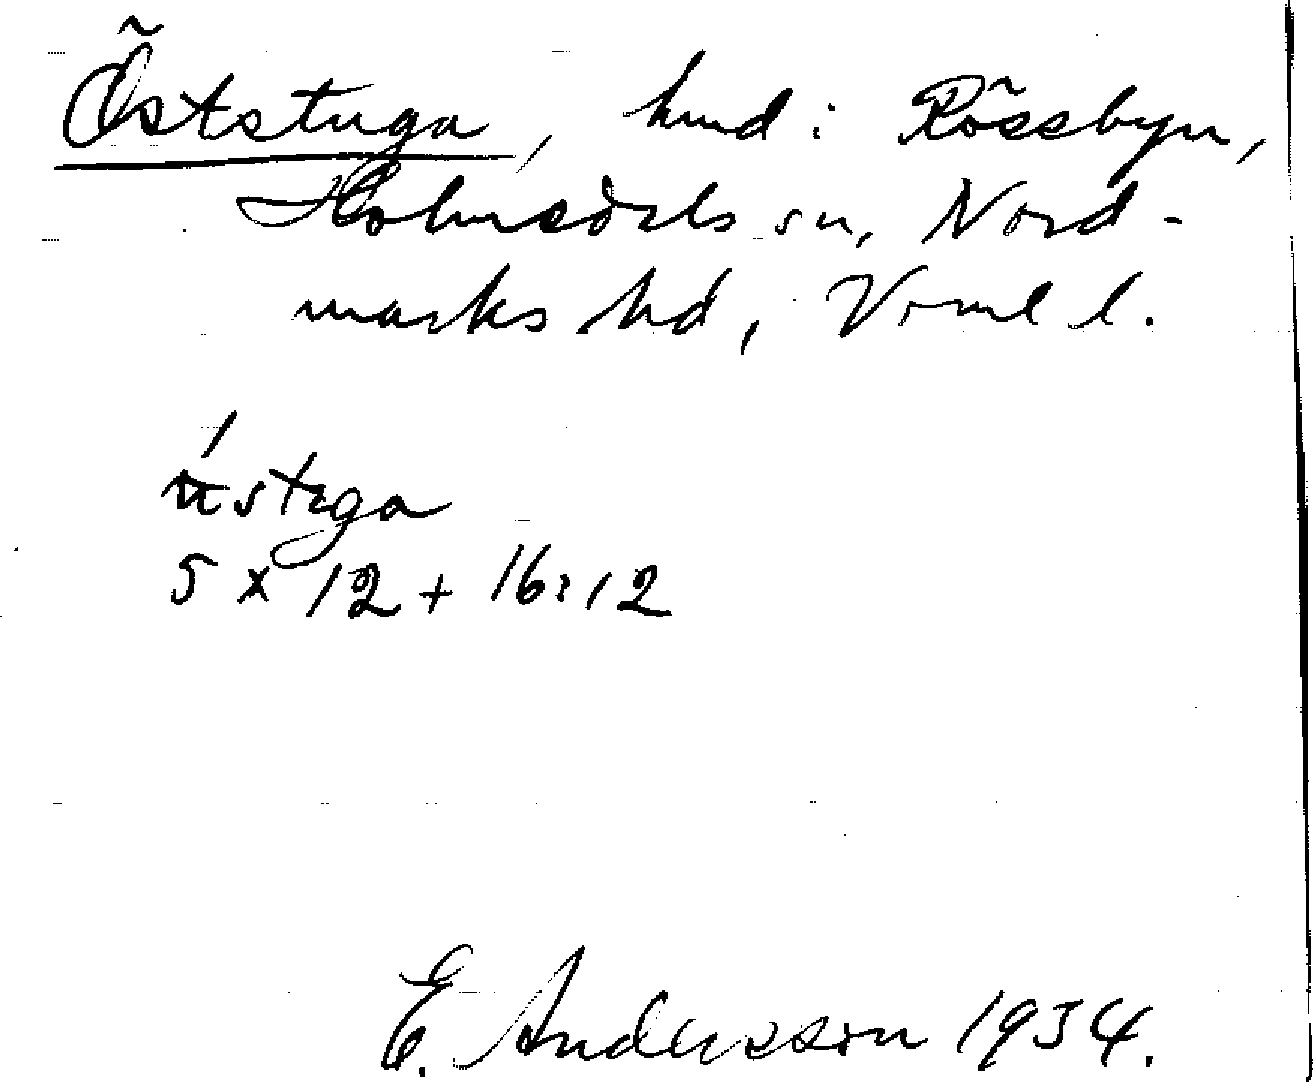 Öststuga, hmd i Rössbyn,
Holmedals sn, Nord-
marks hd, Vrml l.
ústega
5 x 12 + 16:12
E. Andersson 1934.